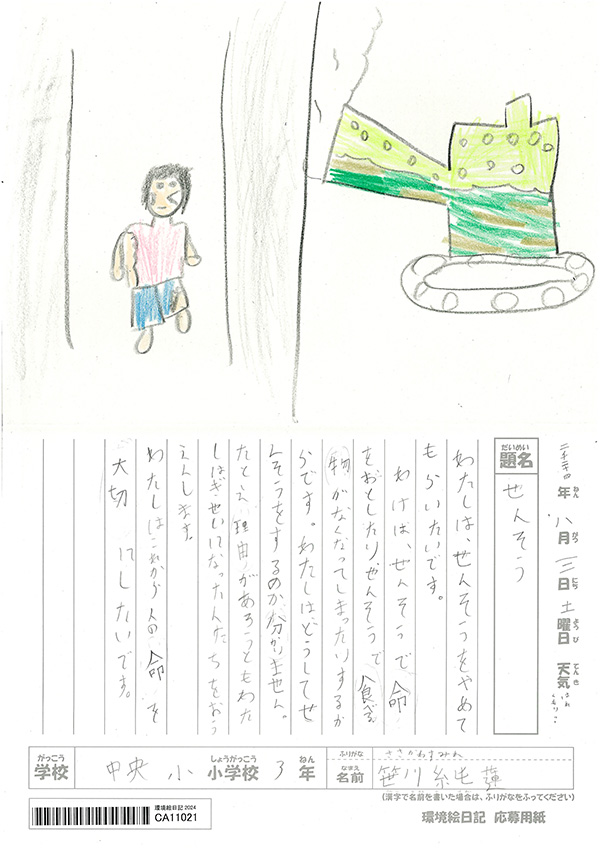 二千二十四年八月三日土曜日 天気 はれ くもり
題名 せんそう
わたしは、せんそうをやめて
もらいたいです。
わけは、せんそうで命
をおとしたりせんそうで食べ
物がなくなってしまったりするか
らです。わたしはどうしてせ
んそうをするのか分かりません。
たとえ理由があろうともわた
しはぎせいになった人たちをおう
えんします。
わたしはこれから人の命を
大切にしたいです。
がっこう 学校 中央小 しょうがっこう 小学校 3 ねん 年
ふりがな ささがわすみれ
なまえ 名前 笹川 純蓮
(漢字で名前を書いた場合は、ふりがなをふってください)
環境絵日記 2024
CA11021
環境絵日記 応募用紙